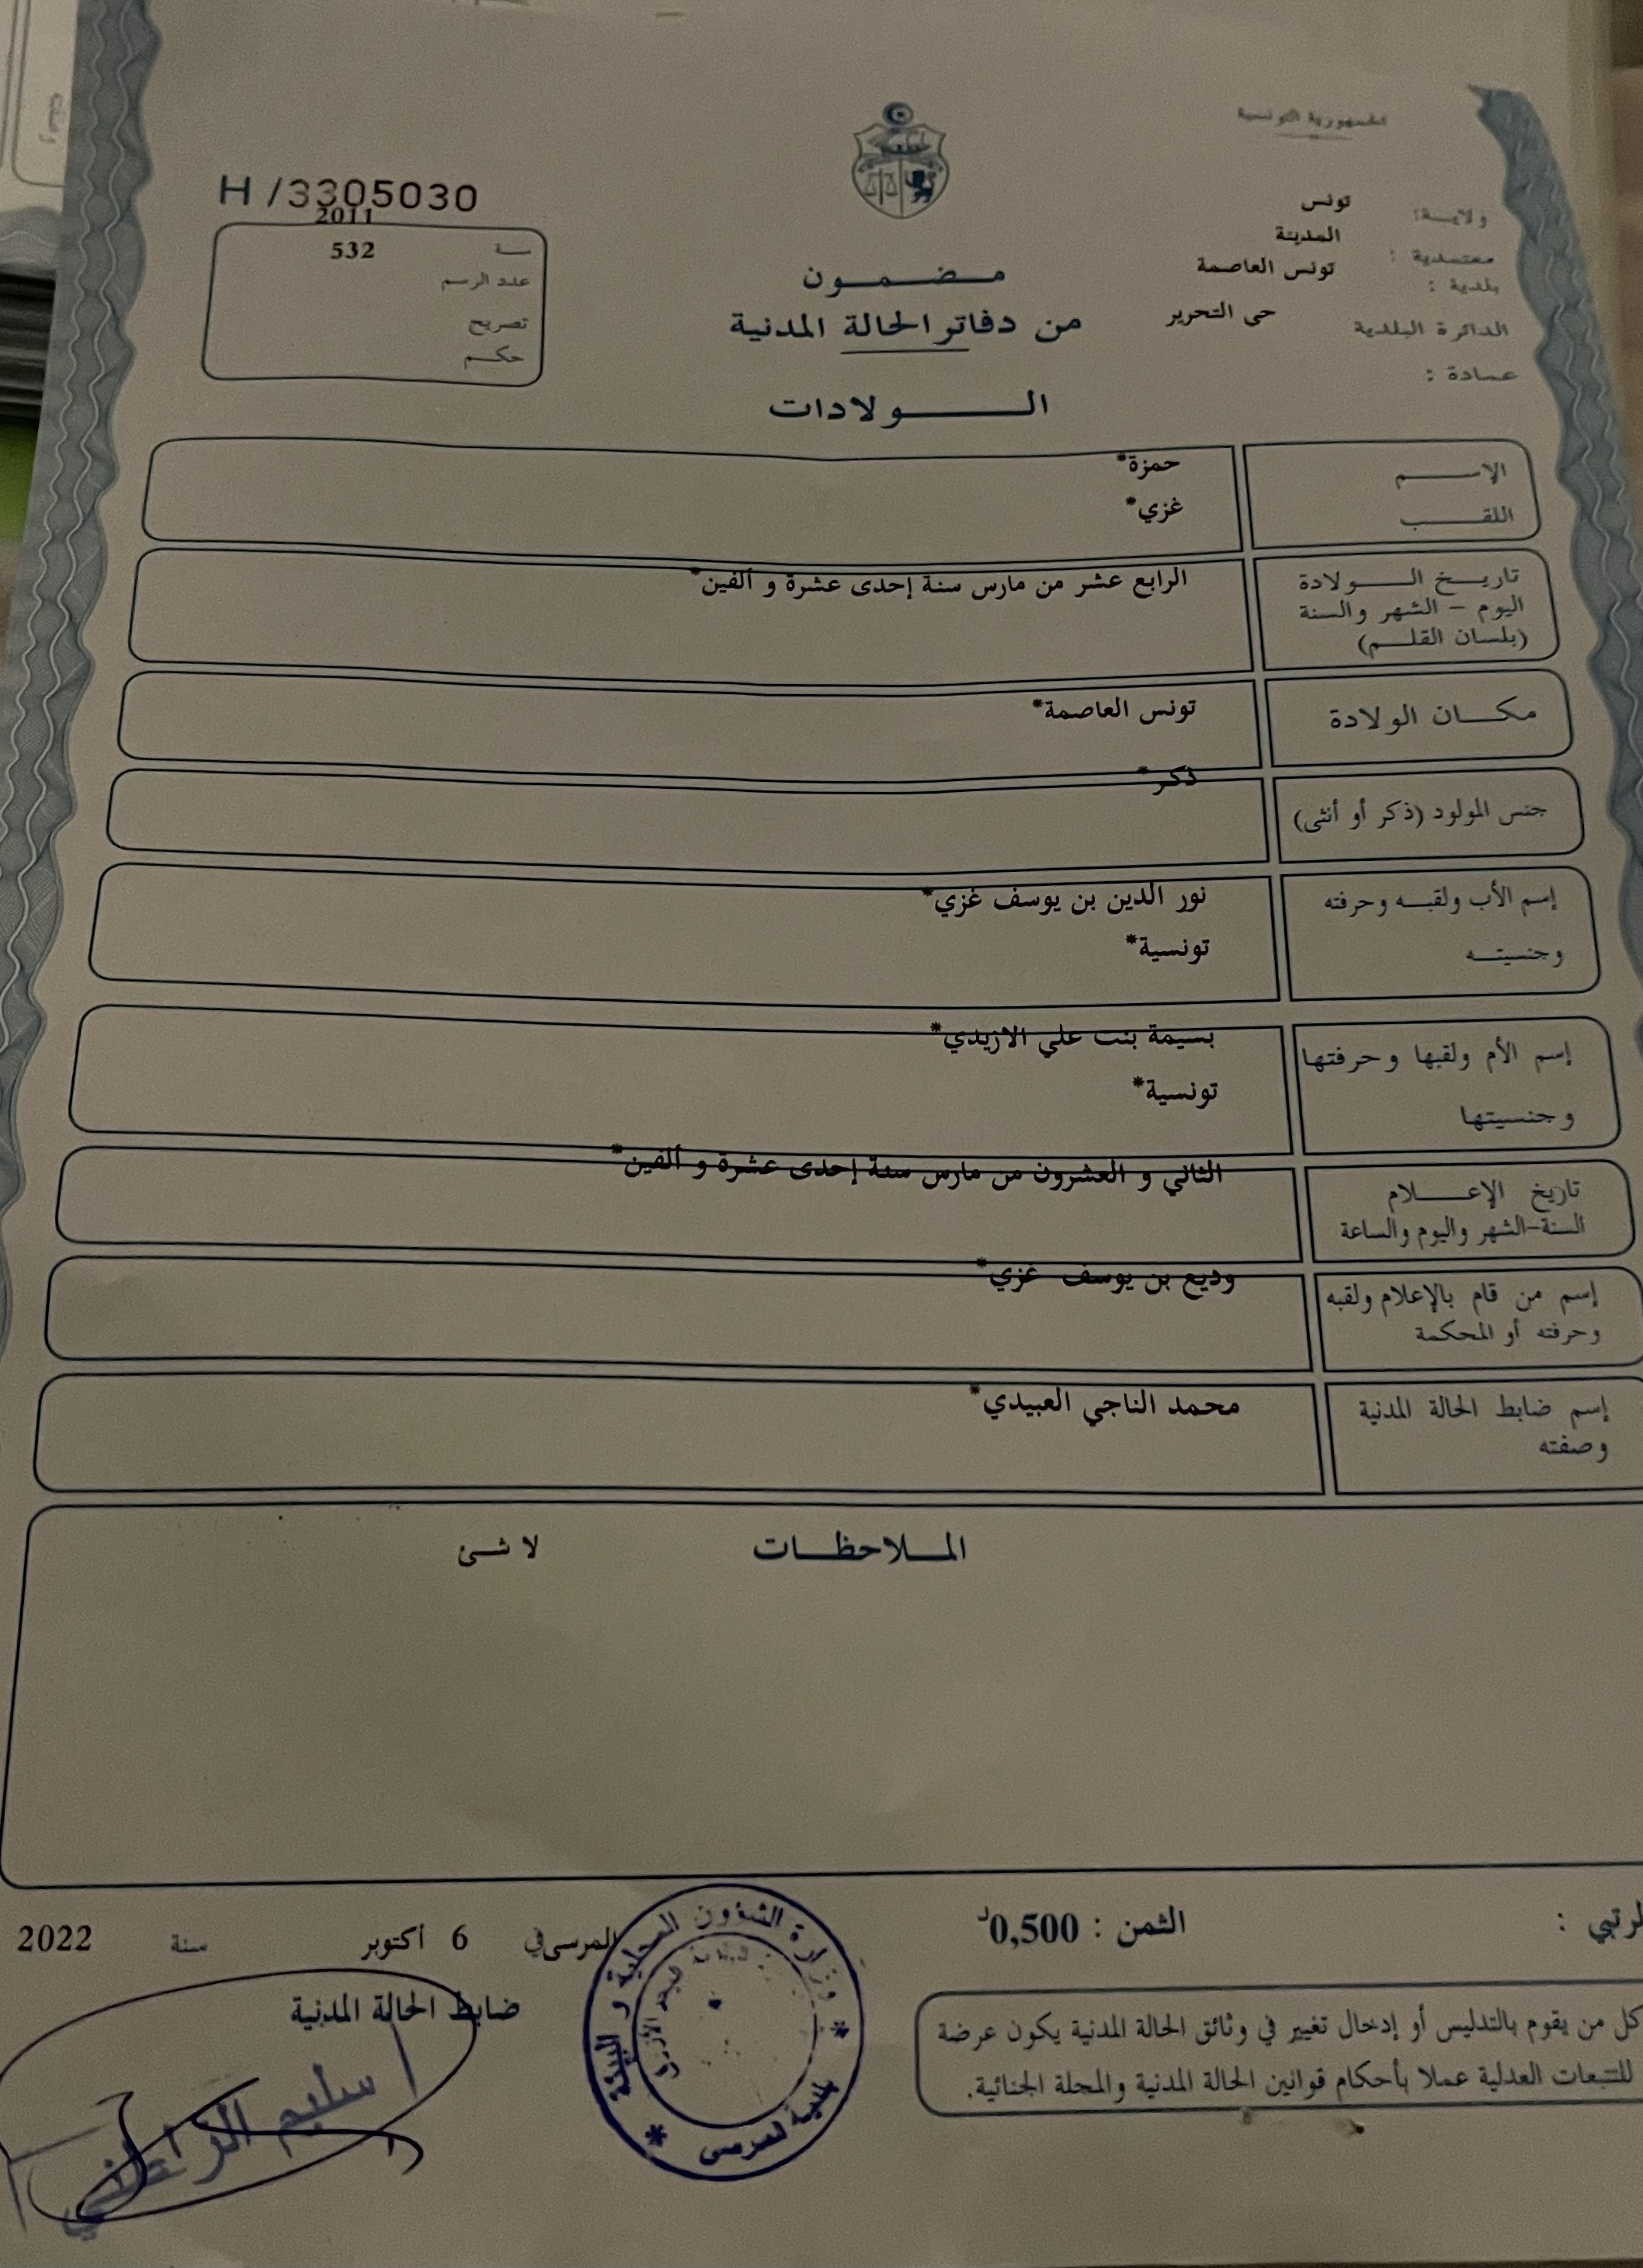 الجمهورية التونسية
H /3305030
ولاية: تونس
معتمدية : المدينة
بلدية : تونس العاصمة
الدائرة البلدية حى التحرير
عمادة :
2011
سنة 532
عدد الرسم
تصريح
حكم
مضمون
من دفاتر الحالة المدنية
الولادات
الإسم حمزة*
اللقب غزي*
تاريخ الولادة الرابع عشر من مارس سنة إحدى عشرة و ألفين*
اليوم - الشهر والسنة
(بلسان القلم)
مكان الولادة تونس العاصمة*
جنس المولود (ذكر أو أنثى) ذكر*
إسم الأب ولقبه وحرفته نور الدين بن يوسف غزي*
وجنسيته تونسية*
إسم الأم ولقبها وحرفتها بسيمة بنت علي الازيدي*
وجنسيتها تونسية*
تاريخ الإعلام الثاني و العشرون من مارس سنة إحدى عشرة و ألفين*
السنة-الشهر واليوم والساعة
إسم من قام بالإعلام ولقبه وديع بن يوسف غزي*
وحرفته أو المحكمة
إسم ضابط الحالة المدنية محمد الناجي العبيدي*
وصفته
الملاحظات لا شئ
الثمن : 0,500د
المرسى في 6 أكتوبر سنة 2022
ضابط الحالة المدنية
كل من يقوم بالتدليس أو إدخال تغيير في وثائق الحالة المدنية يكون عرضة
للتتبعات العدلية عملا بأحكام قوانين الحالة المدنية والمجلة الجنائية.
وزارة الشؤون المحلية و البيئة
بلدية المرسى
سليم